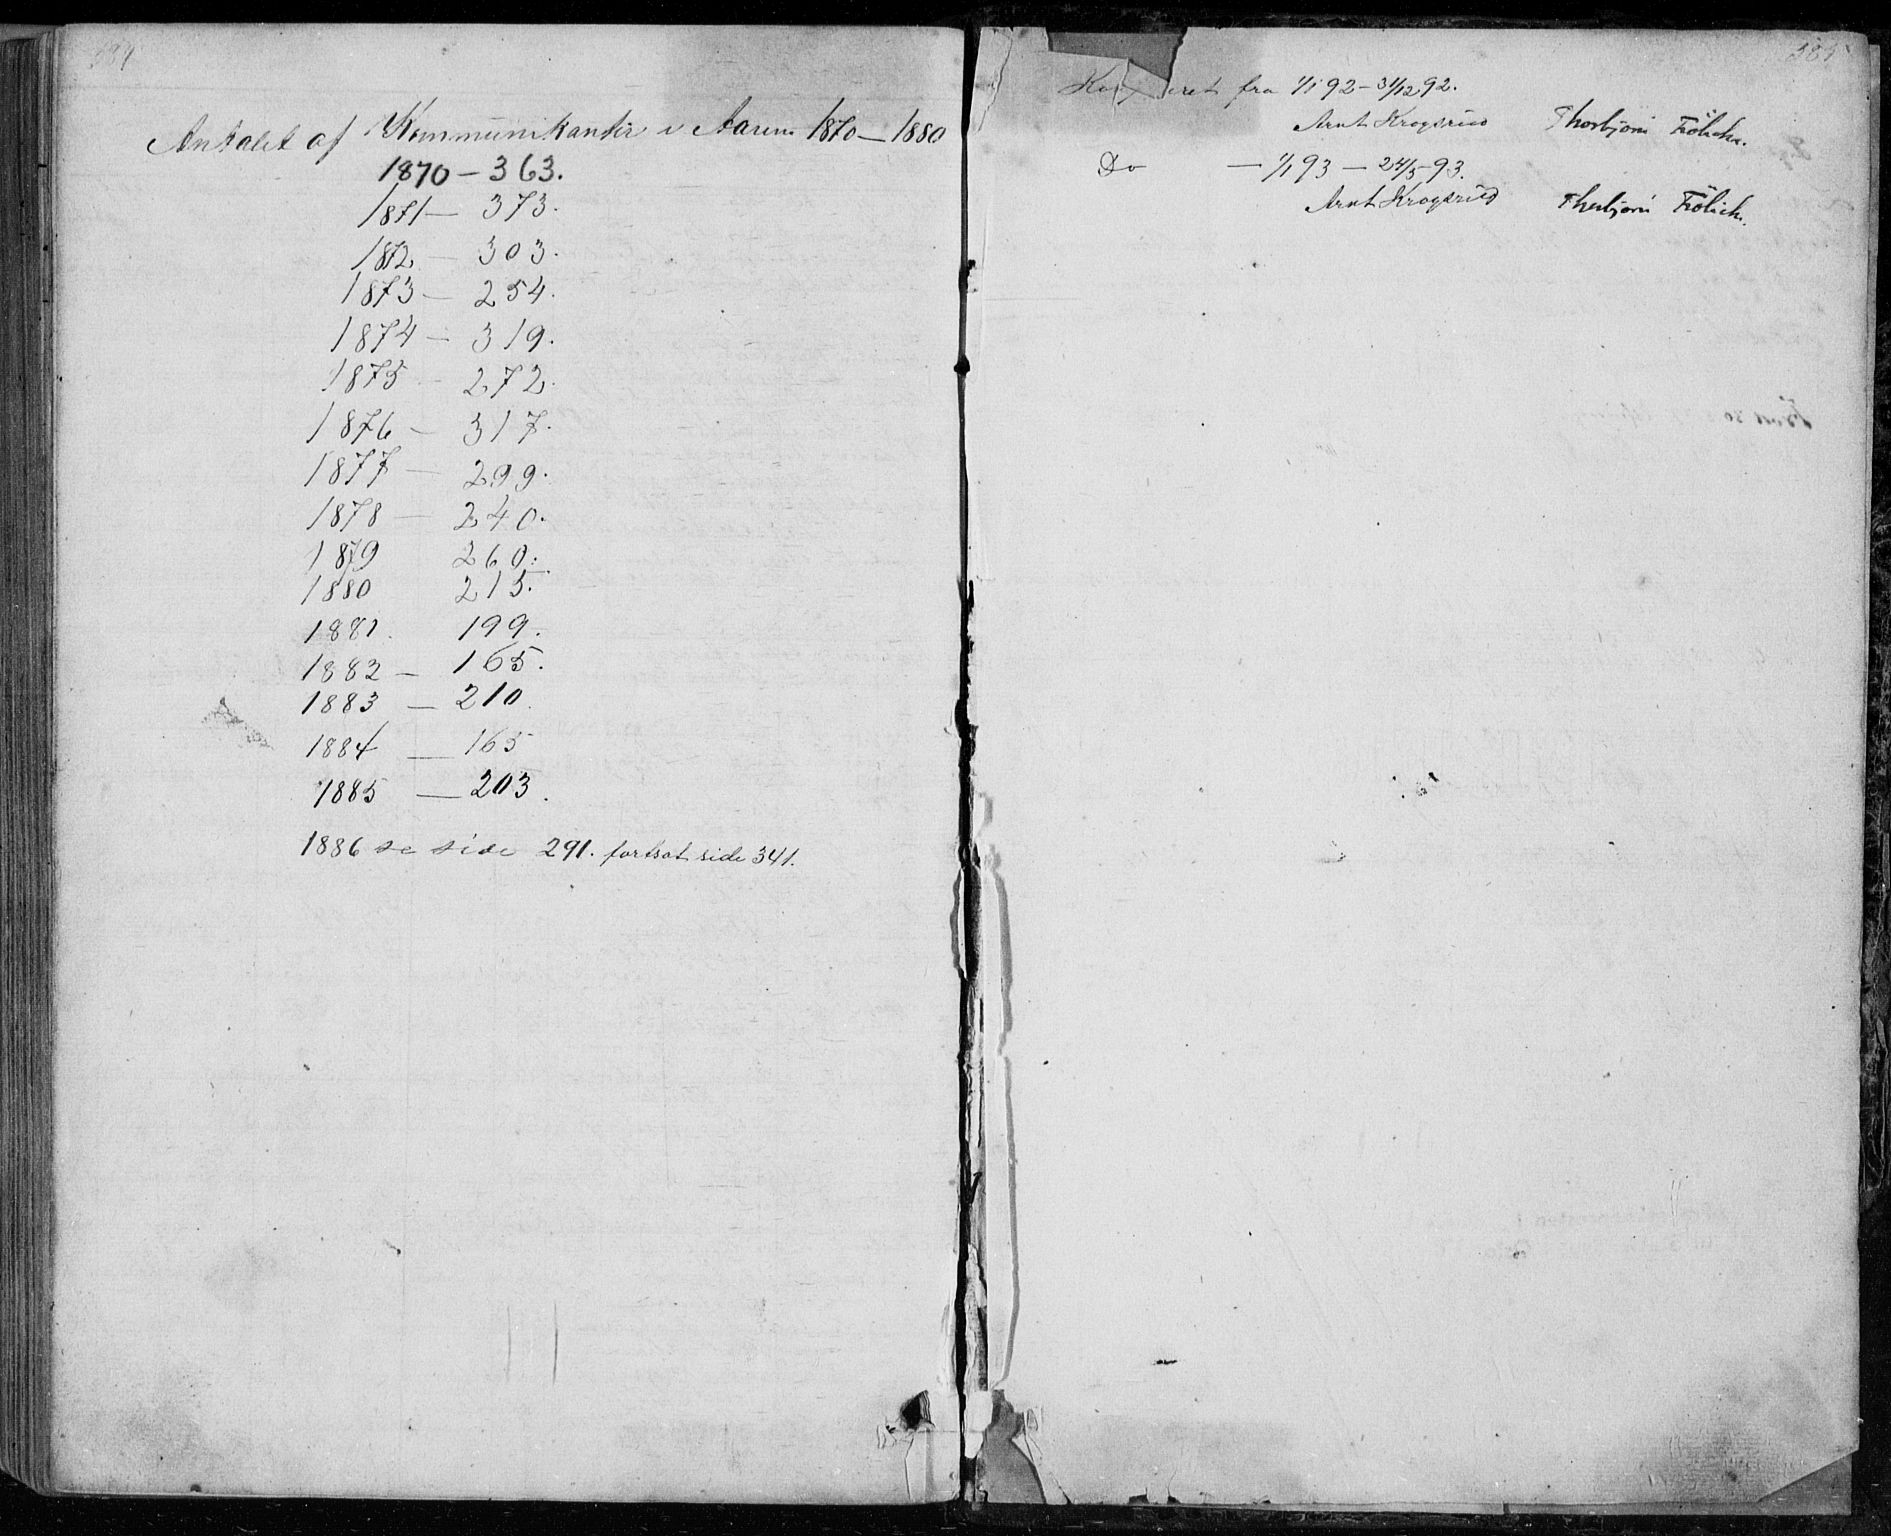 Antalet af Kommunikanter i Aarene 1870 — 1880
1870 — 363.
1871 — 373.
1872 — 303.
1873 — 254.
1874 — 319.
1875 — 272.
1876 — 317.
1877 — 299.
1878 — 240.
1879 260.
1880 215.
1881. 199.
1882 — 165.
1883 — 210.
1884 — 165
1885 — 203.
1886 se side 291. fortsat side 341.
385
fra 1/1 92 — 31/12 92.
Arnt Krogsrud Thorbjørn Frölich.
Do — 1/1 93 — 24/5 93.
Arnt Krogsrud Thorbjørn Frölich.